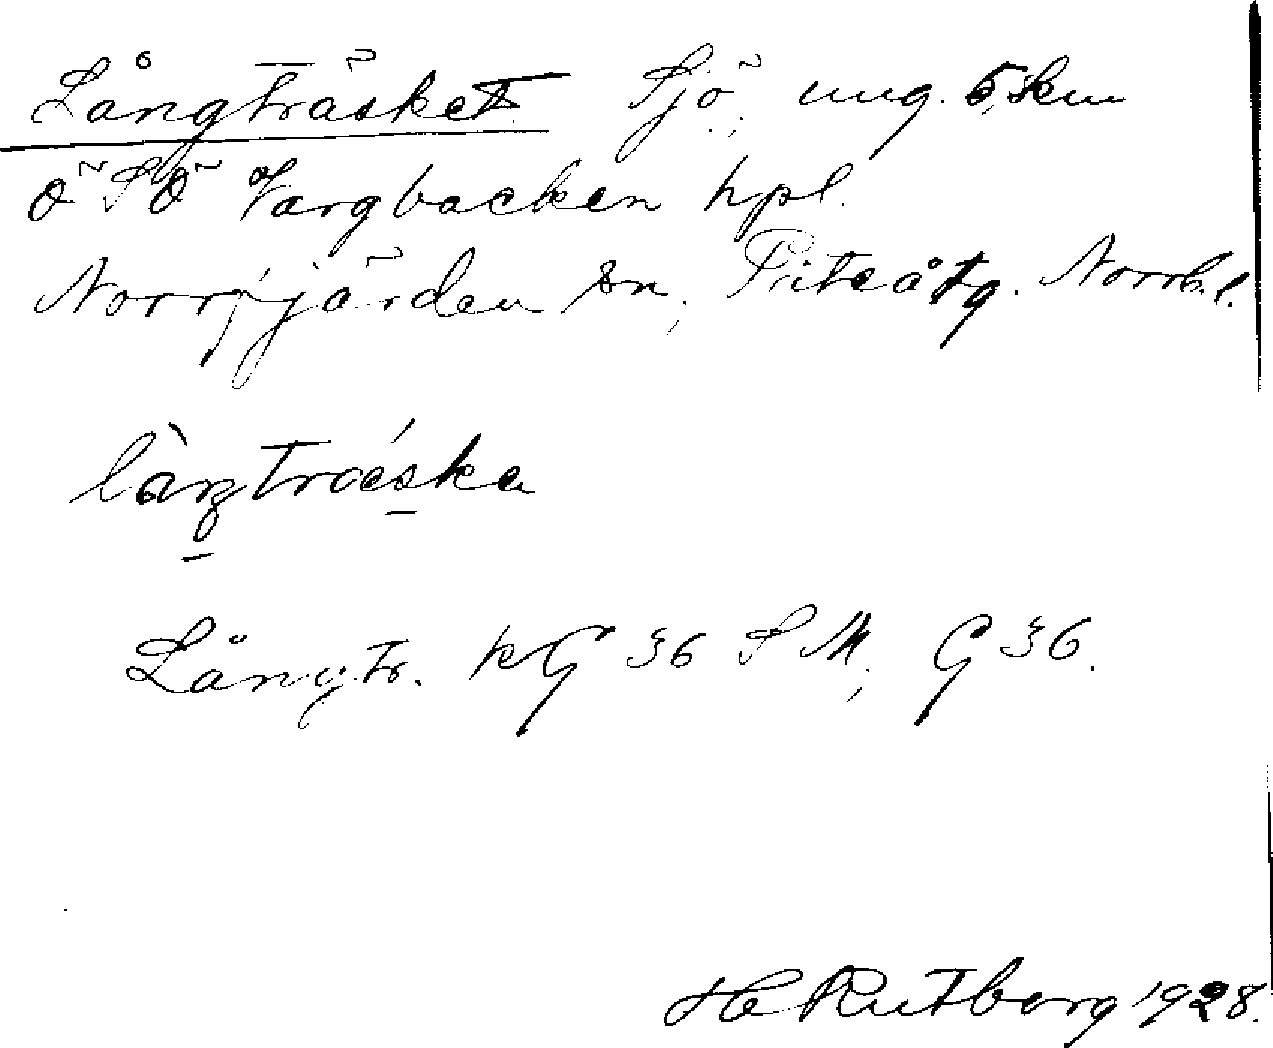 Långträsket Sjö, ung. 5 km
Ö SÖ Vargbacken hpl.
Norrfjärden sn, Piteå tg. Norrb. l.
làŋtrǽska
Långtr. kG 36 SM, G 36.
H Rutberg 1928.